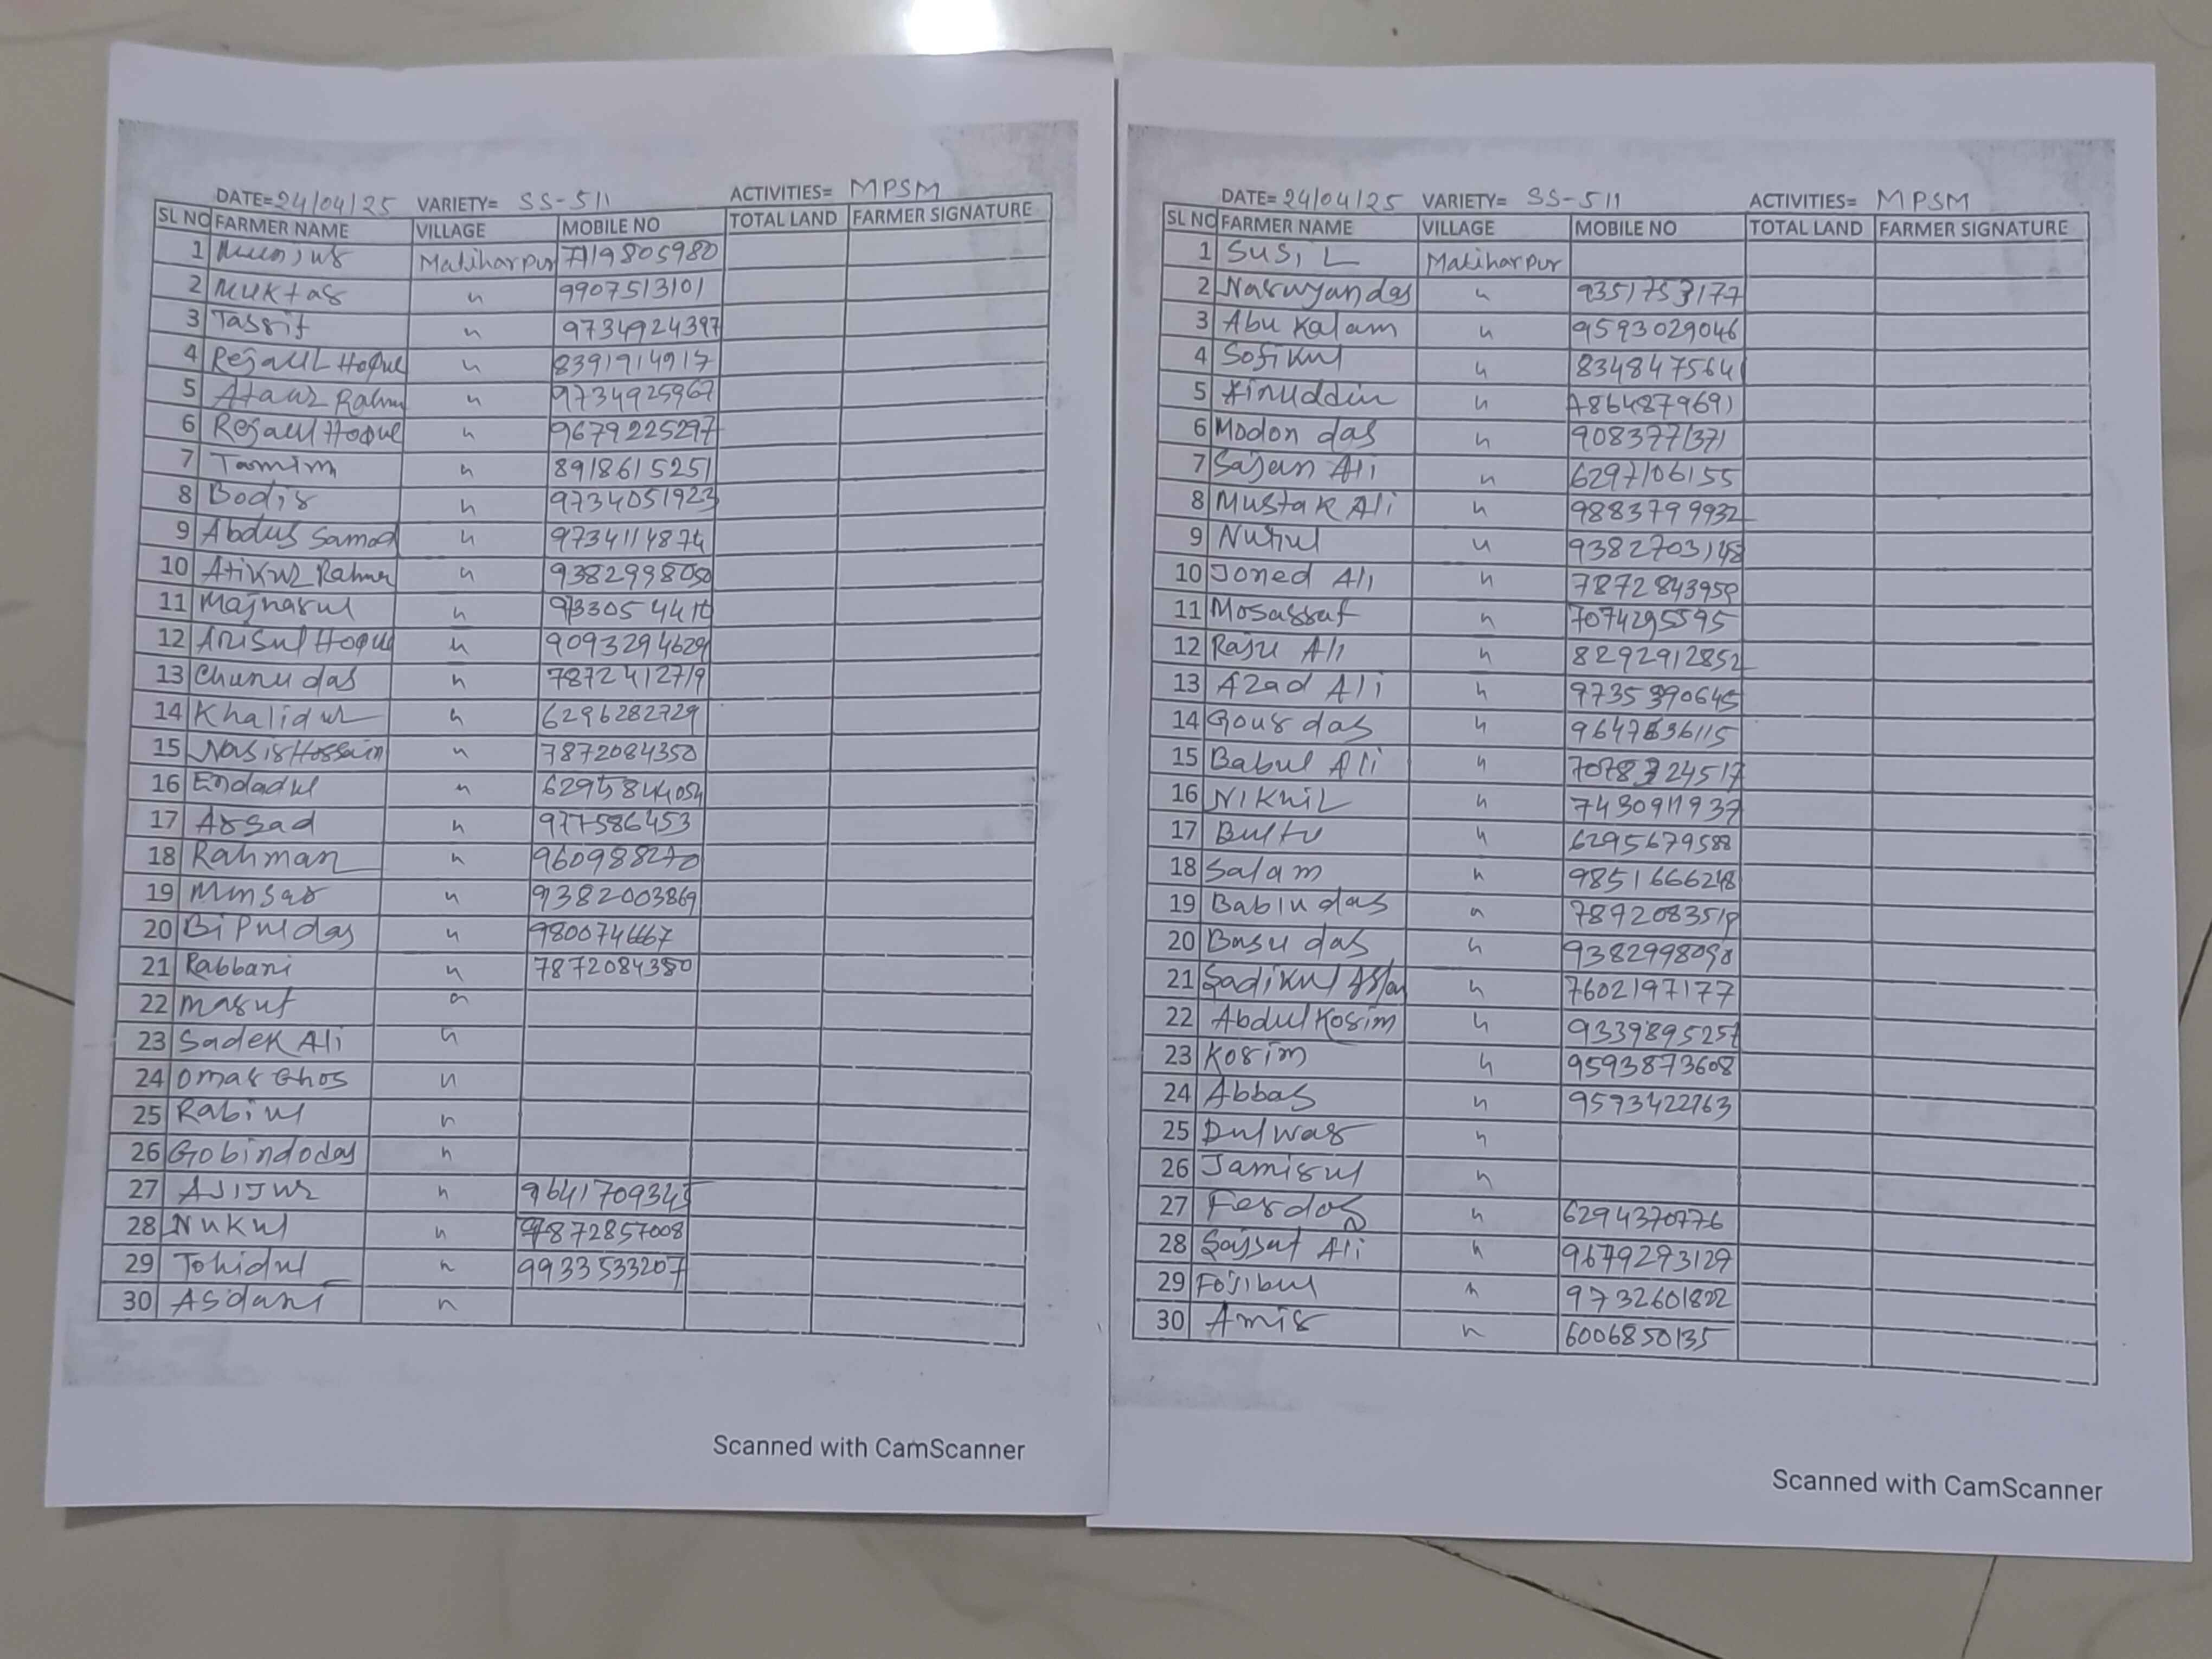 DATE=24/04/25 VARIETY= SS-511 ACTIVITIES= MPSM
SL NO FARMER NAME VILLAGE MOBILE NO TOTAL LAND FARMER SIGNATURE
1 Munjur Maliharpur 7119805980
2 Muktar " 9907513101
3 Tassif " 9734924397
4 Rejaul Hoque " 8391914917
5 Ataur Rahm " 9734925967
6 Rejaul Hoque " 9679225297
7 Tamim " 8918615251
8 Bodir " 9734051923
9 Abdus Samad " 9734114874
10 Atikur Rahmr " 9382998050
11 Majnarul "
12 Arisul Hoque " 9093294629
13 Chunu das " 7872412719
14 Khalidur " 6296282729
15 Nasir Hossain " 7872084350
16 Endadul "
17 Arsad " 977586453
18 Rahman " 960988270
19 Minsar " 9382003869
20 Bipul das " 9800746667
21 Rabbani " 7872084350
22 Masut "
23 Sadek Ali "
24 Omar Ghos "
25 Rabiul "
26 Gobindodas "
27 AJIJUR " 9641709345
28 Nukul "
29 Tohidul " 9933533207
30 Asdani "
Scanned with CamScanner
DATE= 24/04/25 VARIETY= SS-511 ACTIVITIES= MPSM
SL NO FARMER NAME VILLAGE MOBILE NO TOTAL LAND FARMER SIGNATURE
1 SUSIL Maliharpur
2 Narayandas " 9351753177
3 Abu Kalam " 9593029046
4 Sofikul " 8348475641
5 "
6 Modon das " 9083771371
7 Sajan Ali " 6297106155
8 Mustak Ali " 9883799932
9 Nurul " 9382703148
10 Joned Ali " 7872843959
11 Mosassaf " 7074295595
12 Raju Ali " 8292912852
13 Azad Ali " 9735390645
14 Gour das " 9647636115
15 Babul Ali " 7078324517
16 NIKHIL " 7430911937
17 Bultu " 6295679588
18 Salam " 9851666248
19 Babin das " 7892083519
20 Basu das " 9382998090
21 Sadikul " 7602197177
22 Abdul Kosim " 9339895257
23 Kosim " 9593873608
24 Abbas " 9593422763
25 Dulwar "
26 Jamirul "
27 Ferdos " 6294370776
28 Sajsat Ali " 9679293129
29 Fojibul " 9732601822
30 Amir " 6006850135
Scanned with CamScanner